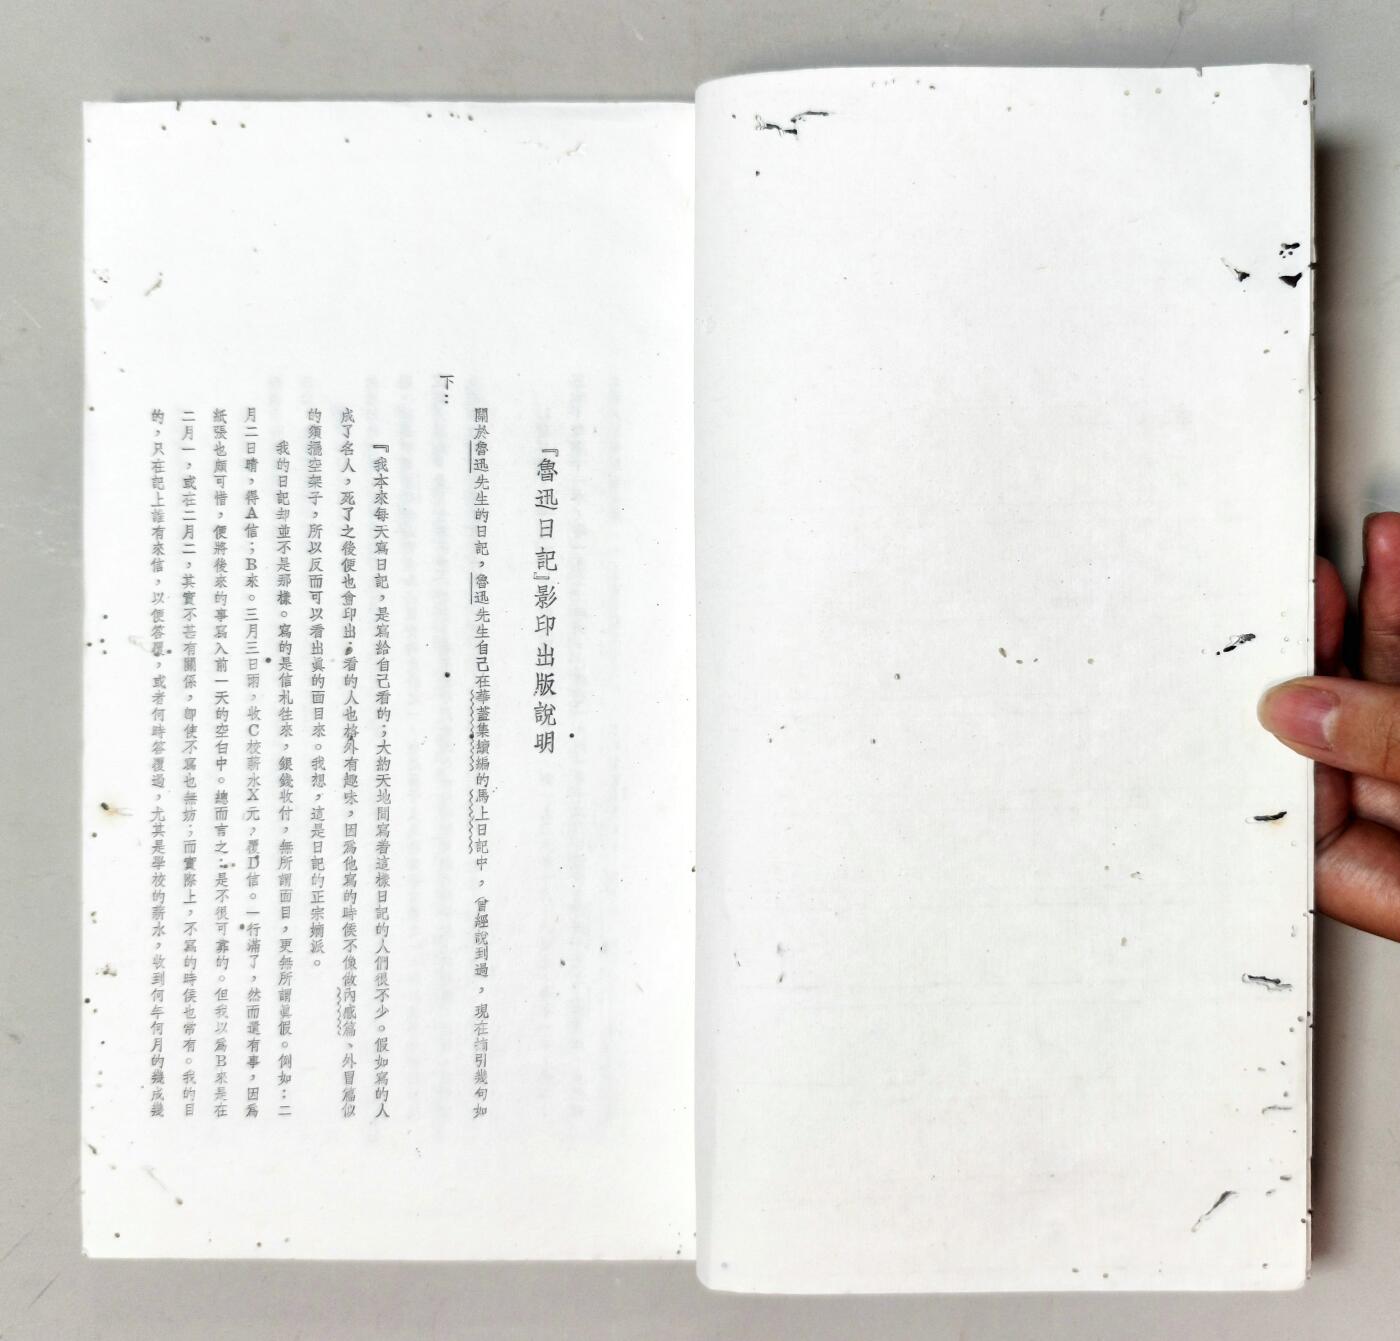 『魯迅日記』影印出版說明
關於魯迅先生的日記，魯迅先生自己在華蓋集續編的馬上日記中，曾經說到過，現在摘引幾句如
下：
『我本來每天寫日記，是寫給自己看的；大約天地間寫着這樣日記的人們很不少。假如寫的人
成了名人，死了之後便也會印出；看的人也格外有趣味，因爲他寫的時候不像做內感篇、外冒篇似
的須擺空架子，所以反而可以看出眞的面目來。我想，這是日記的正宗嫡派。
我的日記却並不是那樣。寫的是信札往來，銀錢收付，無所謂面目，更無所謂眞假。例如：二
月二日晴，得A信；B來。三月三日雨，收C校薪水X元，覆D信。一行滿了，然而還有事，因爲
紙張也頗可惜，便將後來的事寫入前一天的空白中。總而言之：是不很可靠的。但我以爲B來是在
二月一，或在二月二，其實不甚有關係，卽使不寫也無妨；而實際上，不寫的時候也常有。我的目
的，只在記上誰有來信，以便答覆，或者何時答覆過，尤其是學校的薪水，收到何年何月的幾成幾